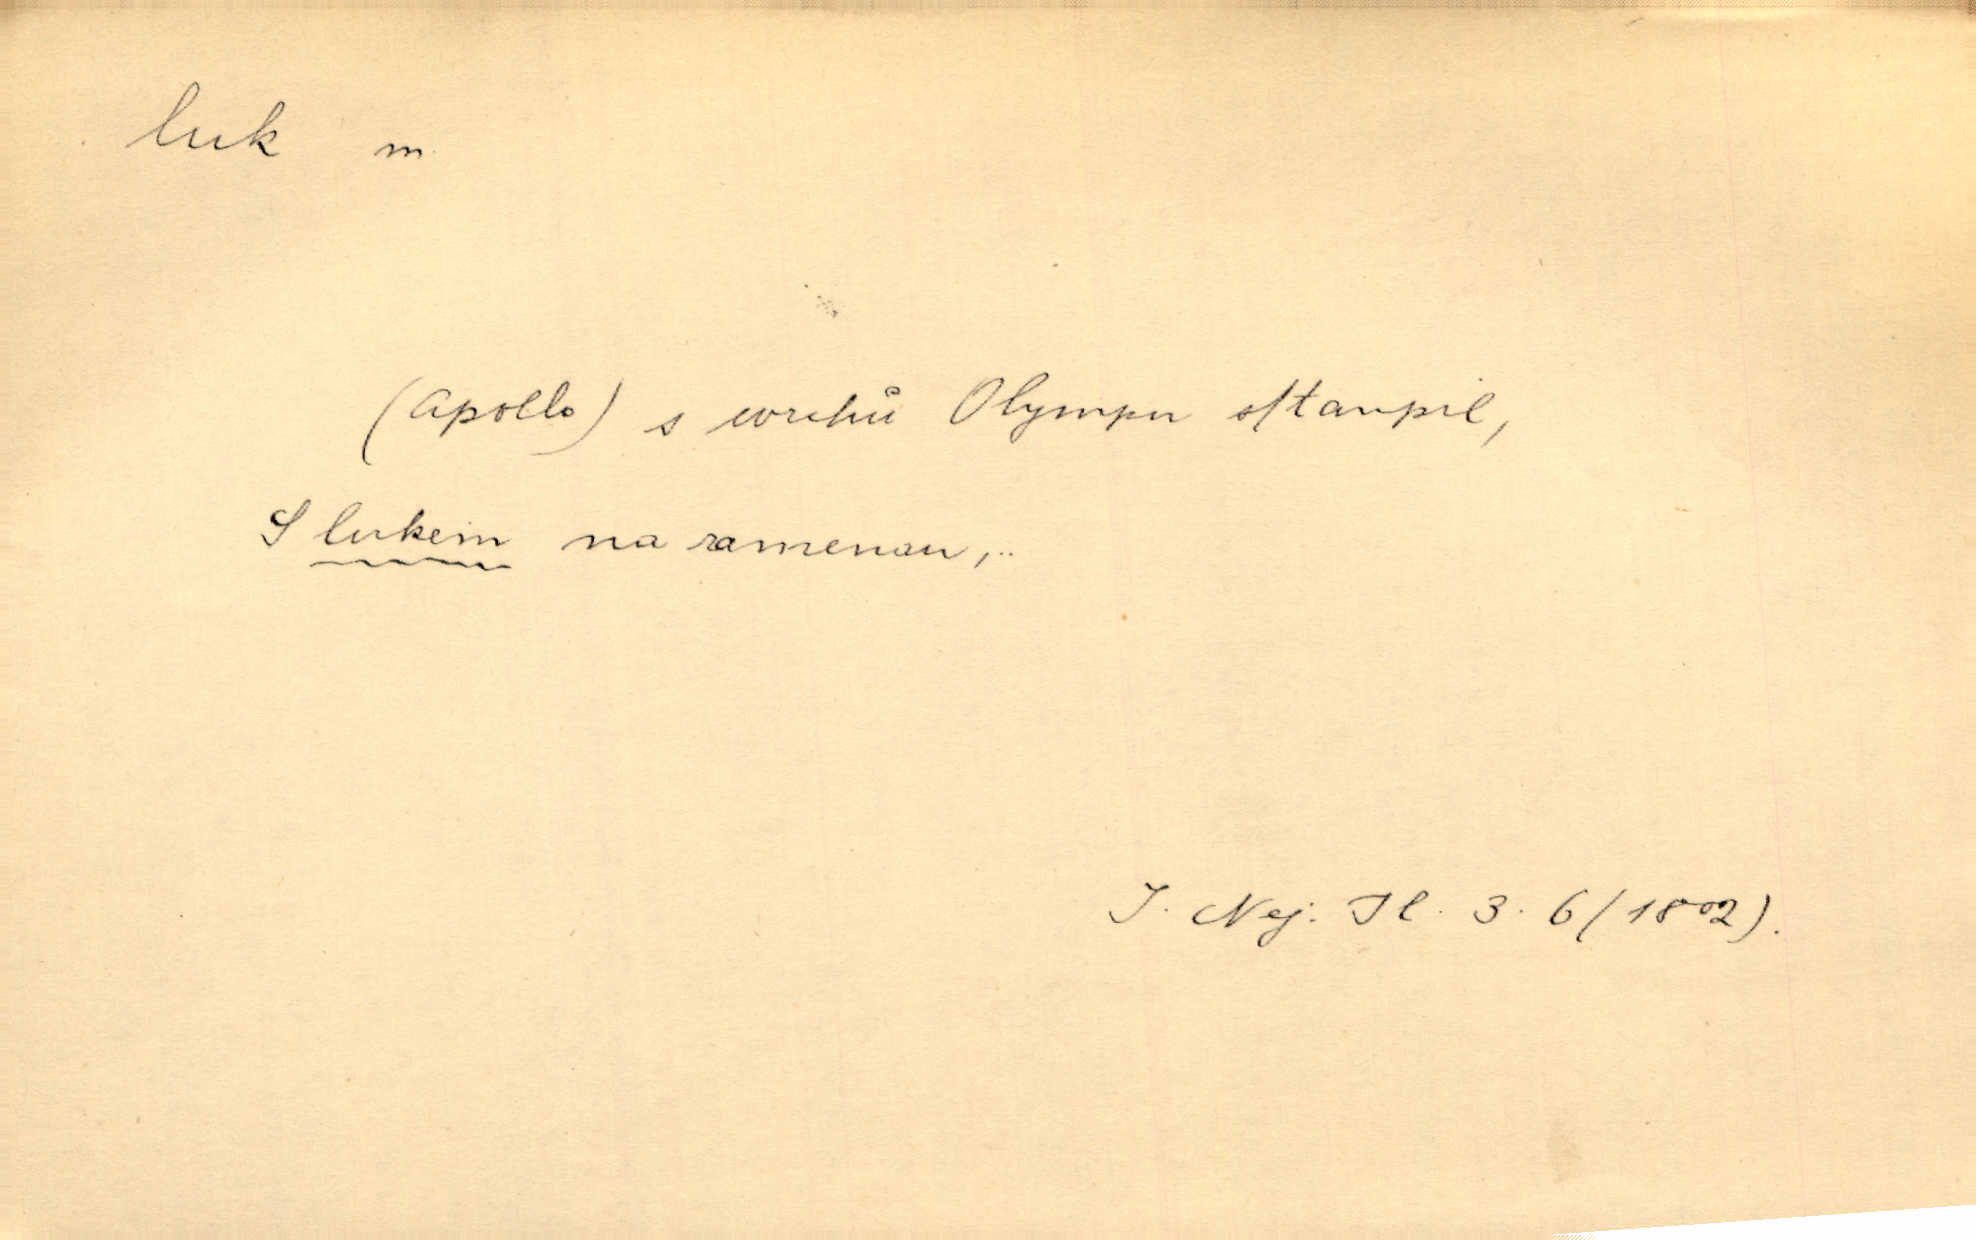 luk m.
(Apollo) s wrchů Olympu sſtaupil,
S lukem na ramenau,..
J. Nej. Il. 3. 6 (1802).